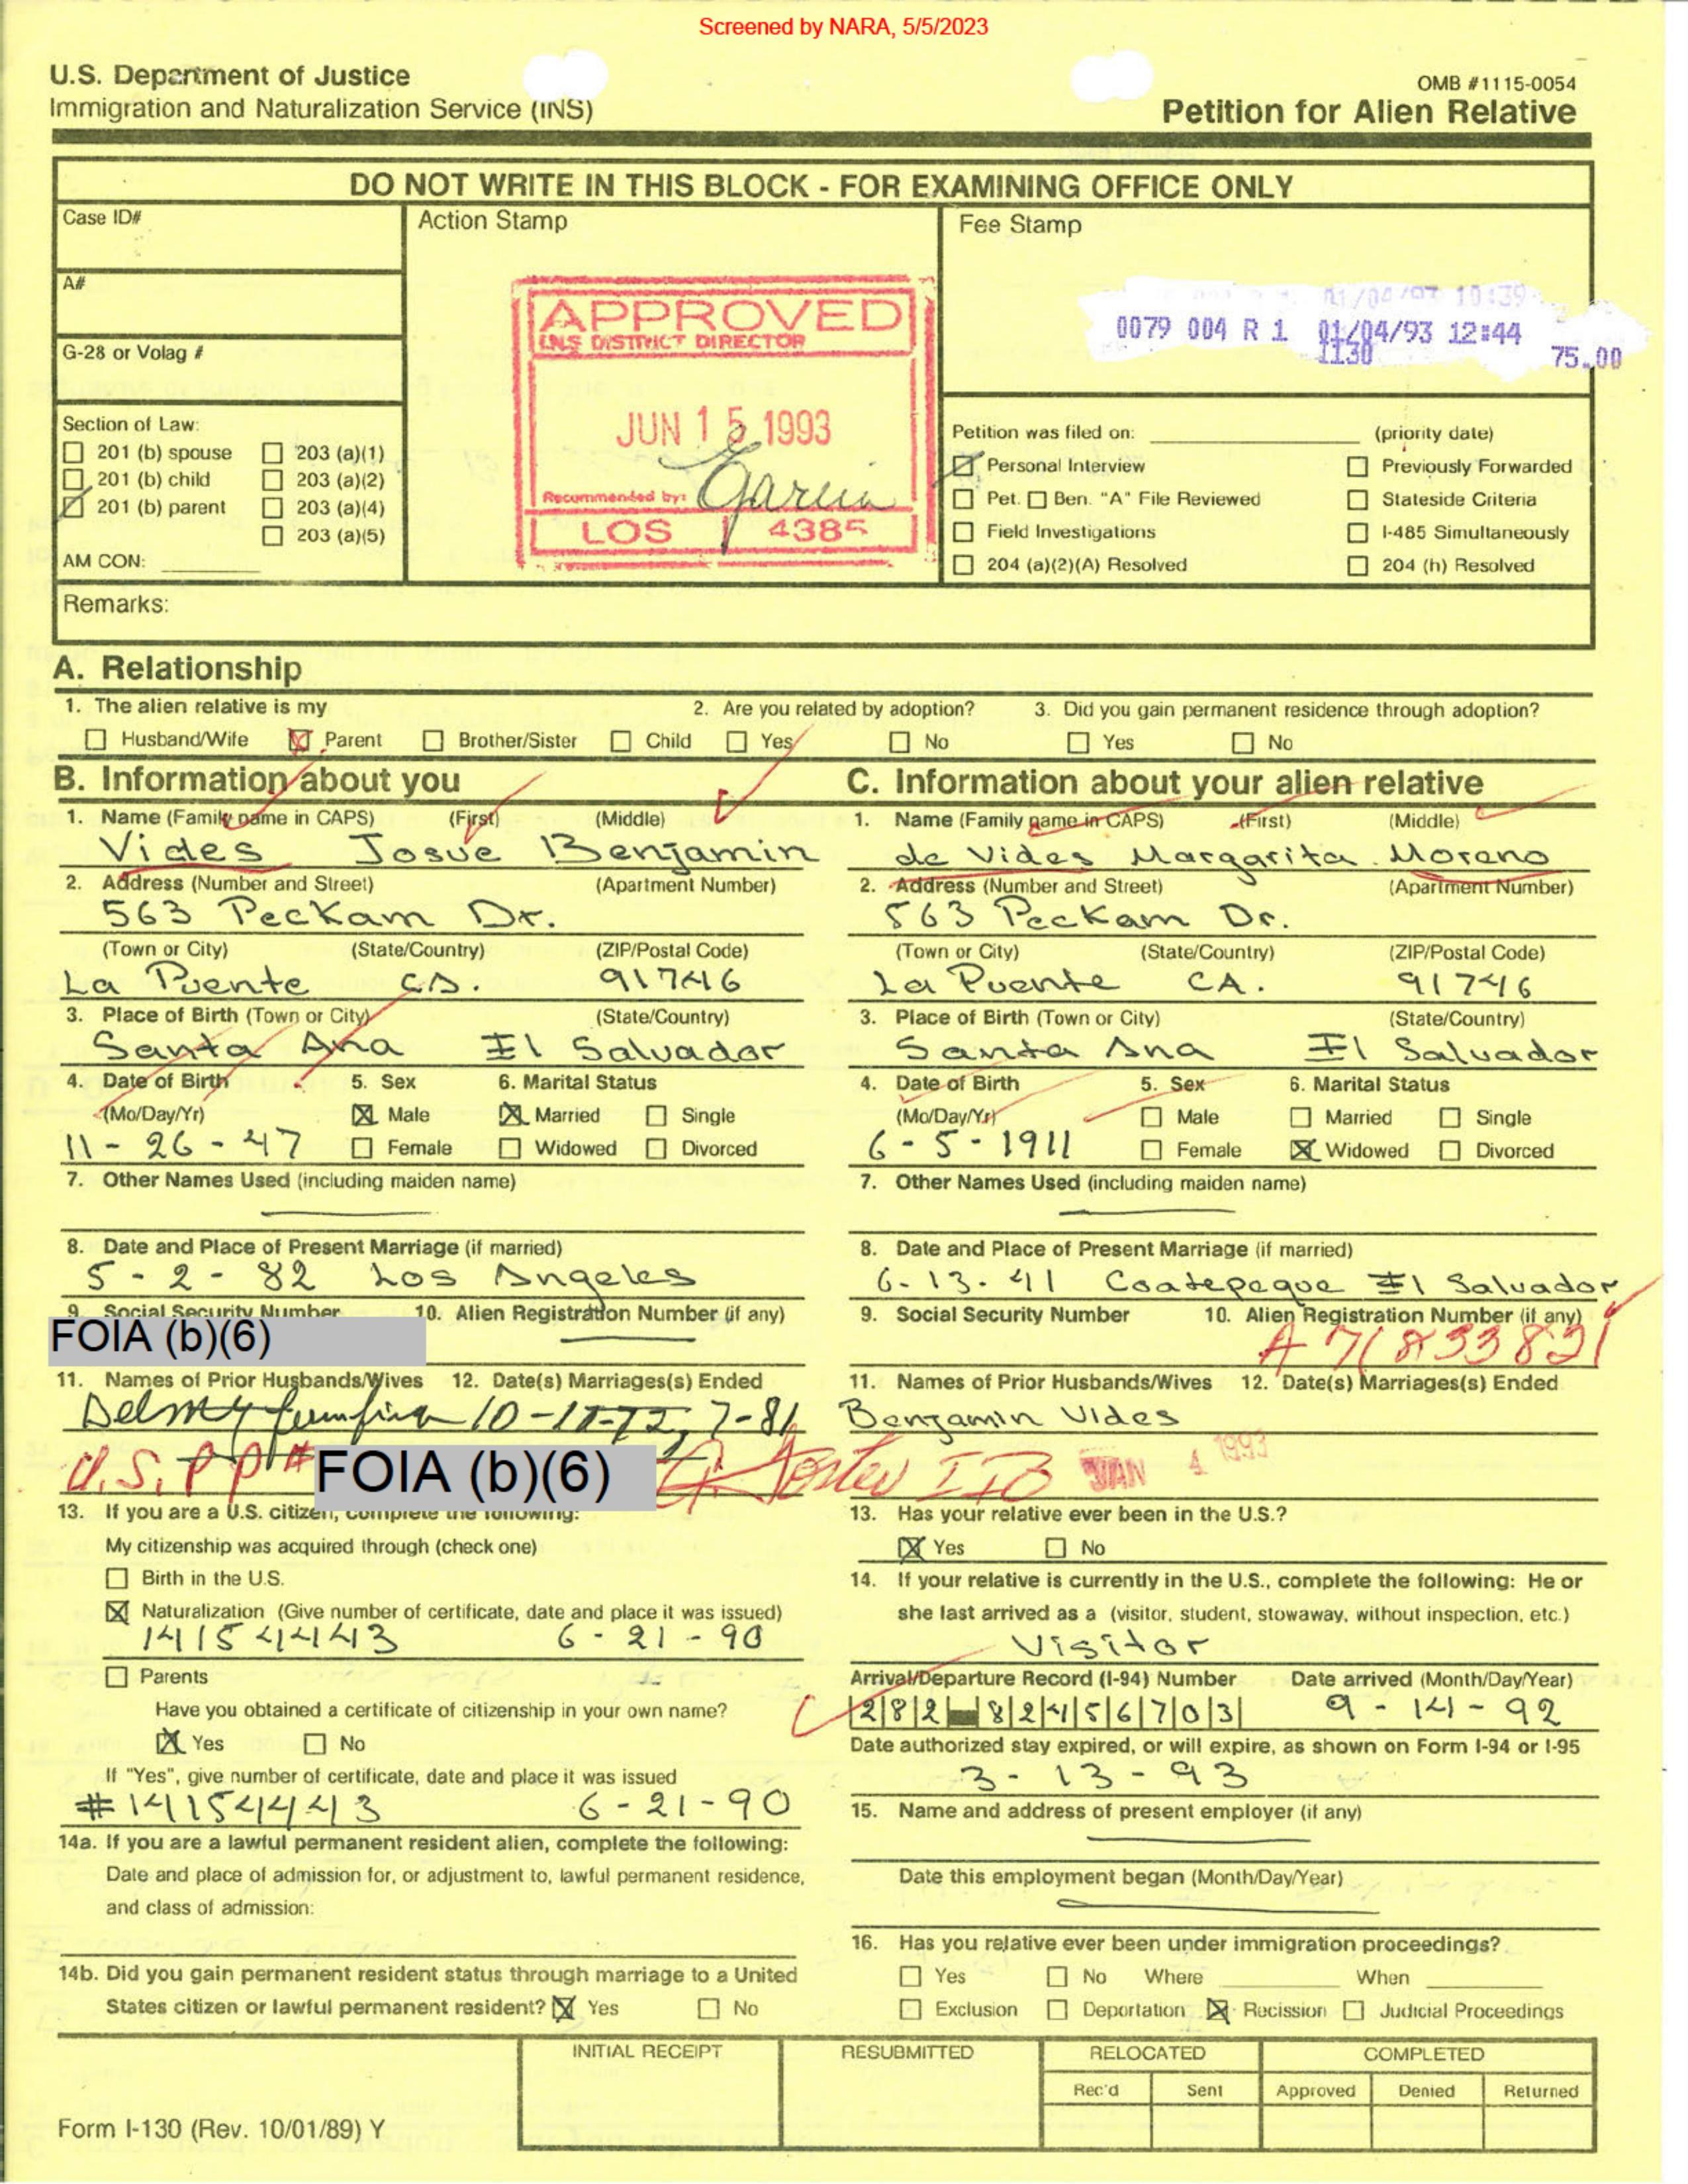 Screened by NARA, 5/5/2023
U.S. Department of Justice
Immigration and Naturalization Service (INS)
OMB #1115-0054
Petition for Alien Relative
DO NOT WRITE IN THIS BLOCK - FOR EXAMINING OFFICE ONLY
Case ID#
Action Stamp
Fee Stamp
A#
G-28 or Volag #
APPROVED
INS DISTRICT DIRECTOR
JUN 15 1993
Recommended by: Garcia
LOS 4385
0079 004 R 1 01/04/93 12:44
I130 75.00
Section of Law:
201 (b) spouse 203 (a)(1)
201 (b) child 203 (a)(2)
201 (b) parent 203 (a)(4)
203 (a)(5)
AM CON:
Petition was filed on: (priority date)
Personal Interview Previously Forwarded
Pet. Ben. "A" File Reviewed Stateside Criteria
Field Investigations I-485 Simultaneously
204 (a)(2)(A) Resolved 204 (h) Resolved
Remarks:
A. Relationship
1. The alien relative is my 2. Are you related by adoption? 3. Did you gain permanent residence through adoption?
Husband/Wife Parent Brother/Sister Child Yes No Yes No
B. Information about you
1. Name (Family name in CAPS) (First) (Middle)
Vides Josue Benjamin
2. Address (Number and Street) (Apartment Number)
563 Peckam Dr.
(Town or City) (State/Country) (ZIP/Postal Code)
La Puente CA. 91746
3. Place of Birth (Town or City) (State/Country)
Santa Ana El Salvador
4. Date of Birth 5. Sex 6. Marital Status
(Mo/Day/Yr) Male Married Single
11-26-47 Female Widowed Divorced
7. Other Names Used (including maiden name)
8. Date and Place of Present Marriage (if married)
5-2-82 Los Angeles
9. Social Security Number 10. Alien Registration Number (if any)
FOIA (b)(6)
11. Names of Prior Husbands/Wives 12. Date(s) Marriages(s) Ended
Delmy 7-81
U.S. PP# FOIA (b)(6)
13. If you are a U.S. citizen, complete the following:
My citizenship was acquired through (check one)
Birth in the U.S.
Naturalization (Give number of certificate, date and place it was issued)
14154443 6-21-90
Parents
Have you obtained a certificate of citizenship in your own name?
Yes No
If "Yes", give number of certificate, date and place it was issued
#14154443 6-21-90
14a. If you are a lawful permanent resident alien, complete the following:
Date and place of admission for, or adjustment to, lawful permanent residence,
and class of admission:
14b. Did you gain permanent resident status through marriage to a United
States citizen or lawful permanent resident? Yes No
C. Information about your alien relative
1. Name (Family name in CAPS) (First) (Middle)
de Vides Margarita Moreno
2. Address (Number and Street) (Apartment Number)
563 Peckam Dr.
(Town or City) (State/Country) (ZIP/Postal Code)
La Puente CA. 91746
3. Place of Birth (Town or City) (State/Country)
Santa Ana El Salvador
4. Date of Birth 5. Sex 6. Marital Status
(Mo/Day/Yr) Male Married Single
6-5-1911 Female Widowed Divorced
7. Other Names Used (including maiden name)
8. Date and Place of Present Marriage (if married)
6-13-41 Coatepeque El Salvador
9. Social Security Number 10. Alien Registration Number (if any)
A 71833821
11. Names of Prior Husbands/Wives 12. Date(s) Marriages(s) Ended
Benjamin Vides
JAN 4 1993
13. Has your relative ever been in the U.S.?
Yes No
14. If your relative is currently in the U.S., complete the following: He or
she last arrived as a (visitor, student, stowaway, without inspection, etc.)
Visitor
Arrival/Departure Record (I-94) Number Date arrived (Month/Day/Year)
282 82456703 9-14-92
Date authorized stay expired, or will expire, as shown on Form I-94 or I-95
3-13-93
15. Name and address of present employer (if any)
Date this employment began (Month/Day/Year)
16. Has you relative ever been under immigration proceedings?
Yes No Where When
Exclusion Deportation Recission Judicial Proceedings
INITIAL RECEIPT RESUBMITTED RELOCATED COMPLETED
Rec'd Sent Approved Denied Returned
Form I-130 (Rev. 10/01/89) Y